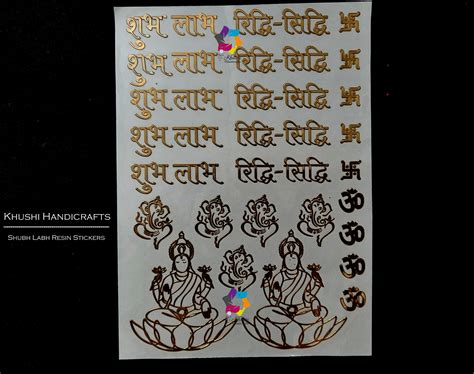 शुभ लाभ रिद्धि-सिद्धि
शुभ लाभ रिद्धि-सिद्धि
शुभ लाभ रिद्धि-सिद्धि
शुभ लाभ रिद्धि-सिद्धि
शुभ लाभ रिद्धि-सिद्धि
ॐ
ॐ
ॐ
ॐ
KHUSHI HANDICRAFTS
SHUBH LABH RESIN STICKERS